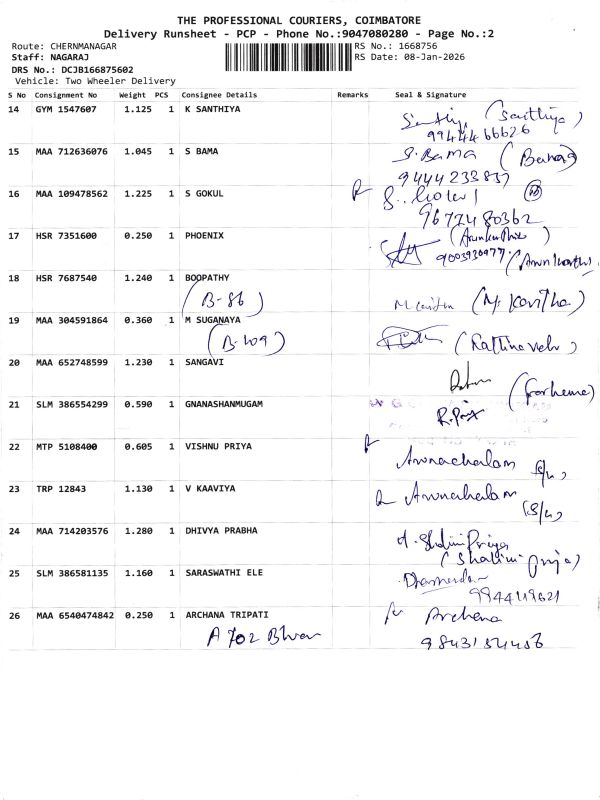 THE PROFESSIONAL COURIERS, COIMBATORE
Delivery Runsheet - PCP - Phone No.:9047080280 - Page No.:2
Route: CHERNMANAGAR RS No.: 1668756
Staff: NAGARAJ RS Date: 08-Jan-2026
DRS No.: DCJB166875602
Vehicle: Two Wheeler Delivery
S No Consignment No Weight PCS Consignee Details Remarks Seal & Signature
14 GYM 1547607 1.125 1 K SANTHIYA (Santhiya)
9944466626
15 MAA 712636076 1.045 1 S BAMA S. Bama (Bama)
9444233837
16 MAA 109478562 1.225 1 S GOKUL S. Gokul
9677480362
17 HSR 7351600 0.250 1 PHOENIX
9003930977
18 HSR 7687540 1.240 1 BOOPATHY
(B-86) (Mr Kavitha)
19 MAA 304591864 0.360 1 M SUGANAYA
(B-109) (Rattinavelu)
20 MAA 652748599 1.230 1 SANGAVI
21 SLM 386554299 0.590 1 GNANASHANMUGAM
22 MTP 5108400 0.605 1 VISHNU PRIYA Arunachalam
23 TRP 12843 1.130 1 V KAAVIYA Arunachalam
24 MAA 714203576 1.280 1 DHIVYA PRABHA A. Shalini Priya
(Shalini Priya)
25 SLM 386581135 1.160 1 SARASWATHI ELE
9944119621
26 MAA 6540474842 0.250 1 ARCHANA TRIPATI for Archana
A 702 9843154456